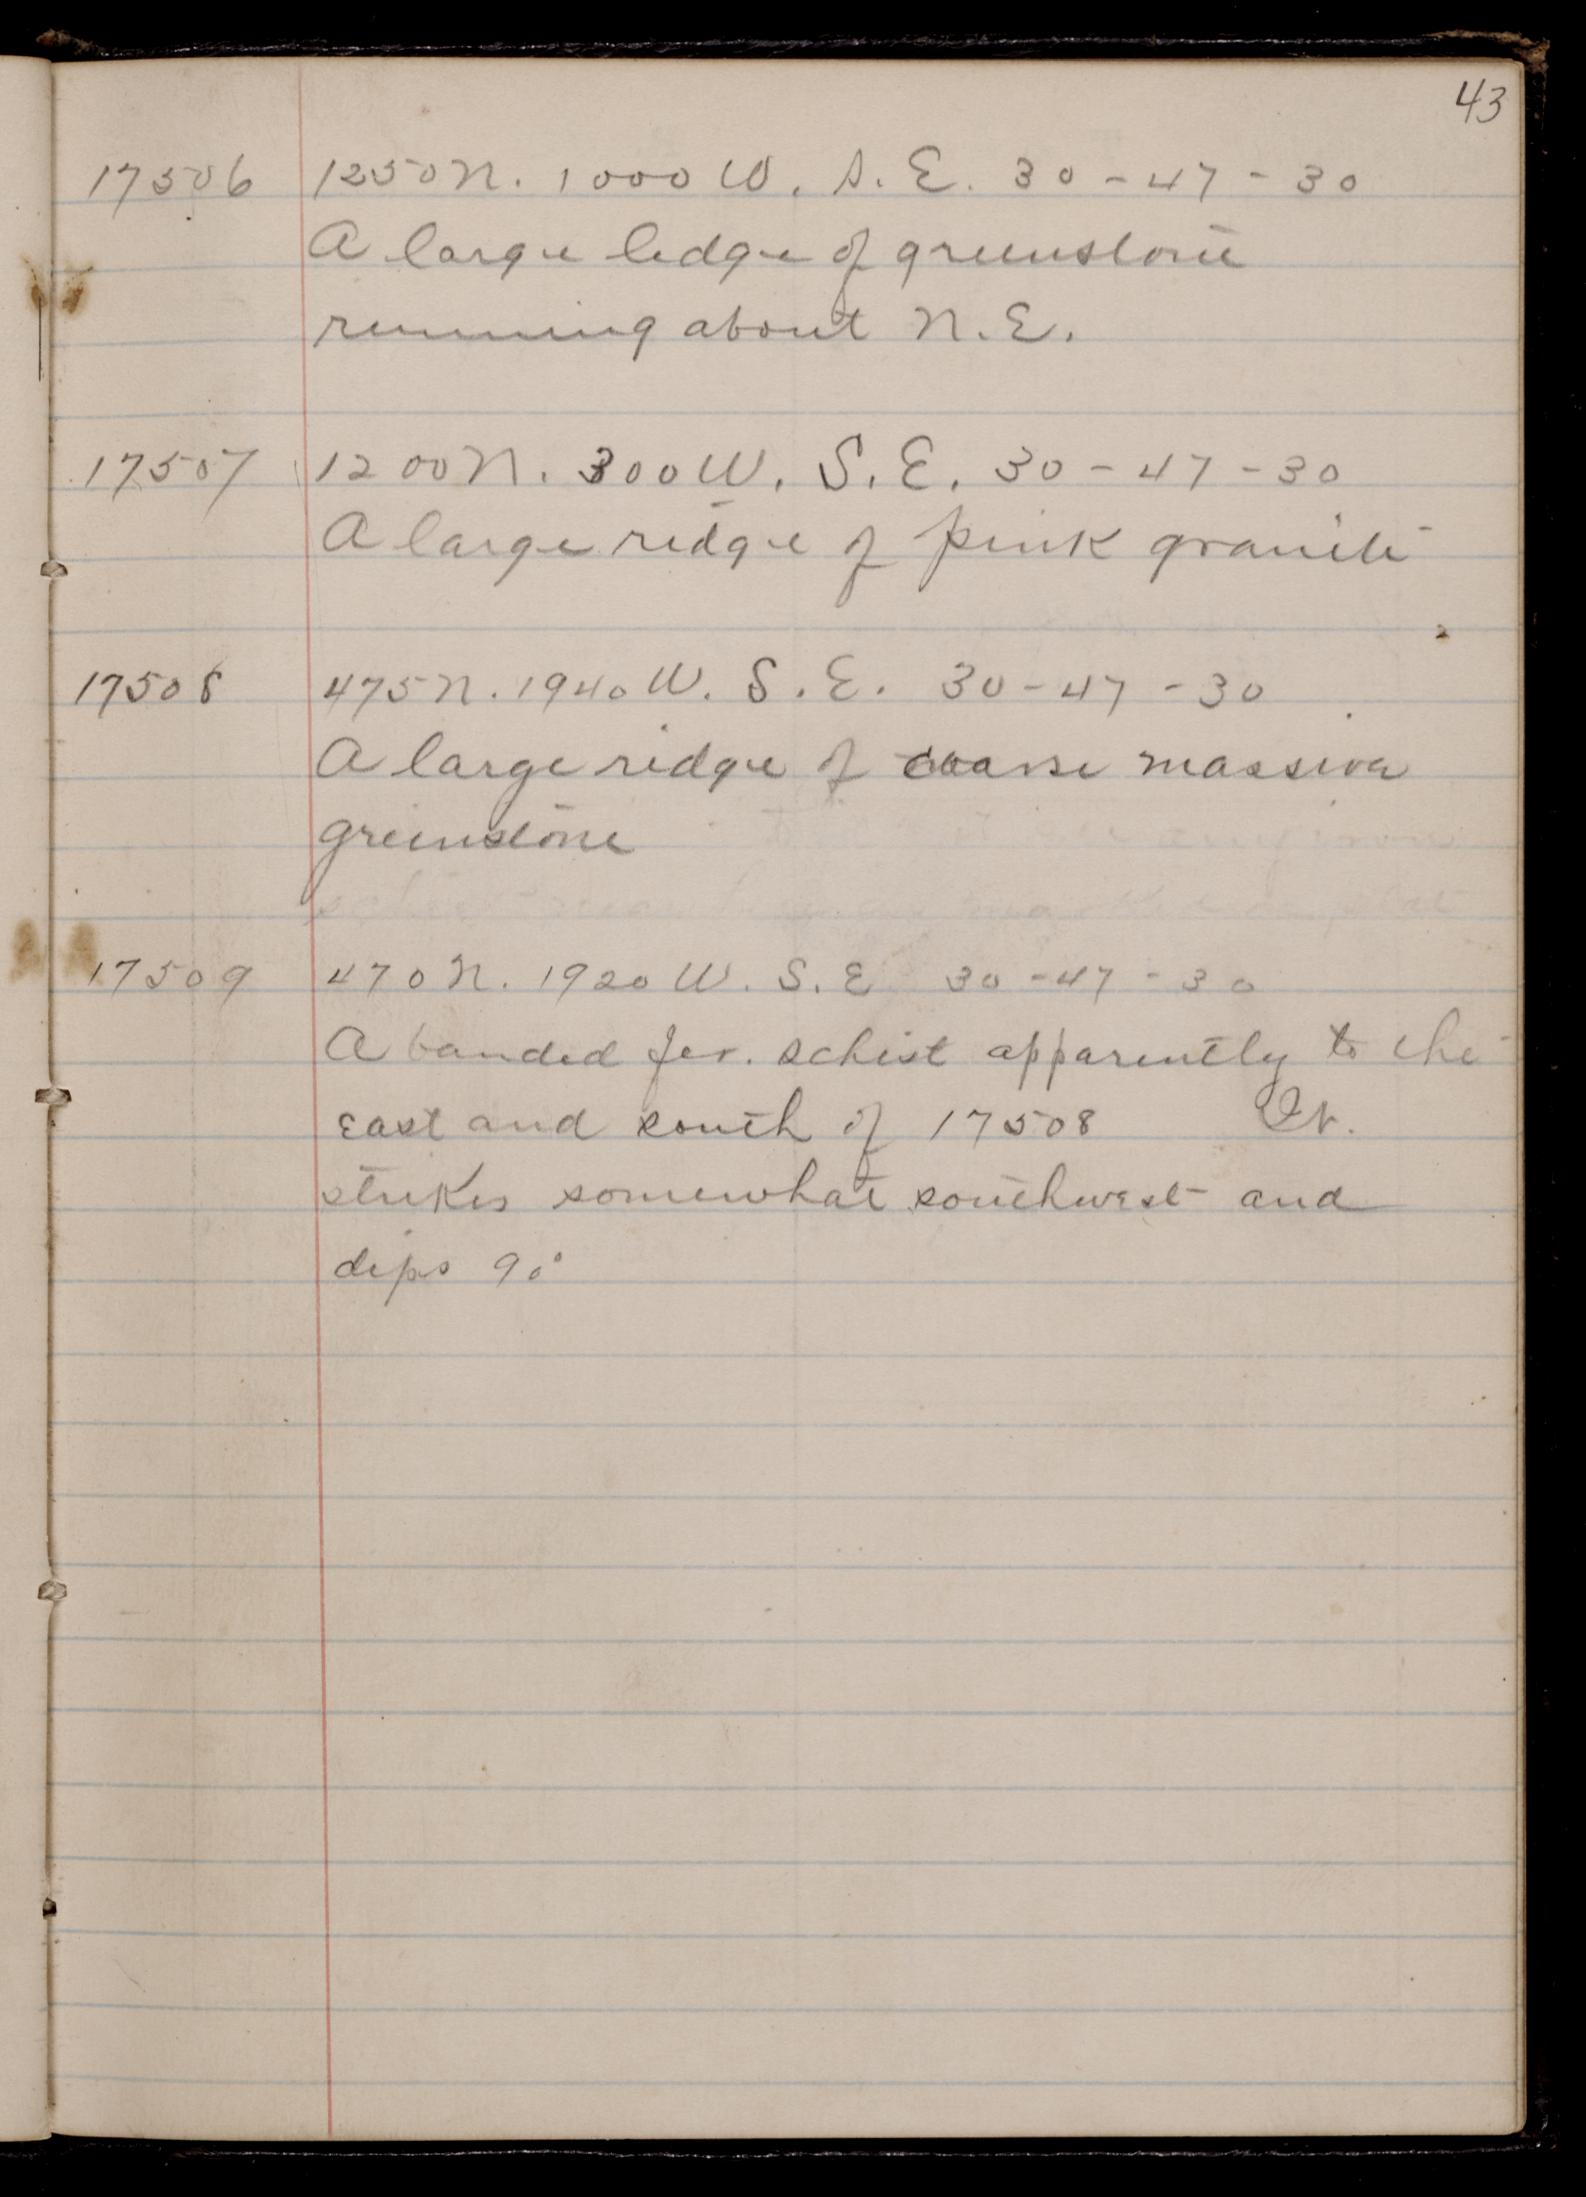 43
17506 1250 N. 1000 W. S. E. 30-47-30
A large ledge of greenstone
running about N.E.
17507 1200 N. 300 W. S. E. 30-47-30
A large ridge of pink granite
17508 475 N. 1940 W. S. E. 30-47-30
A large ridge of coarse massive
greenstone
17509 470 N. 1920 W. S. E 30-47-30
A banded fer. schist apparently to the
east and south of 17508 It.
strikes somewhat southwest and
dips 90°